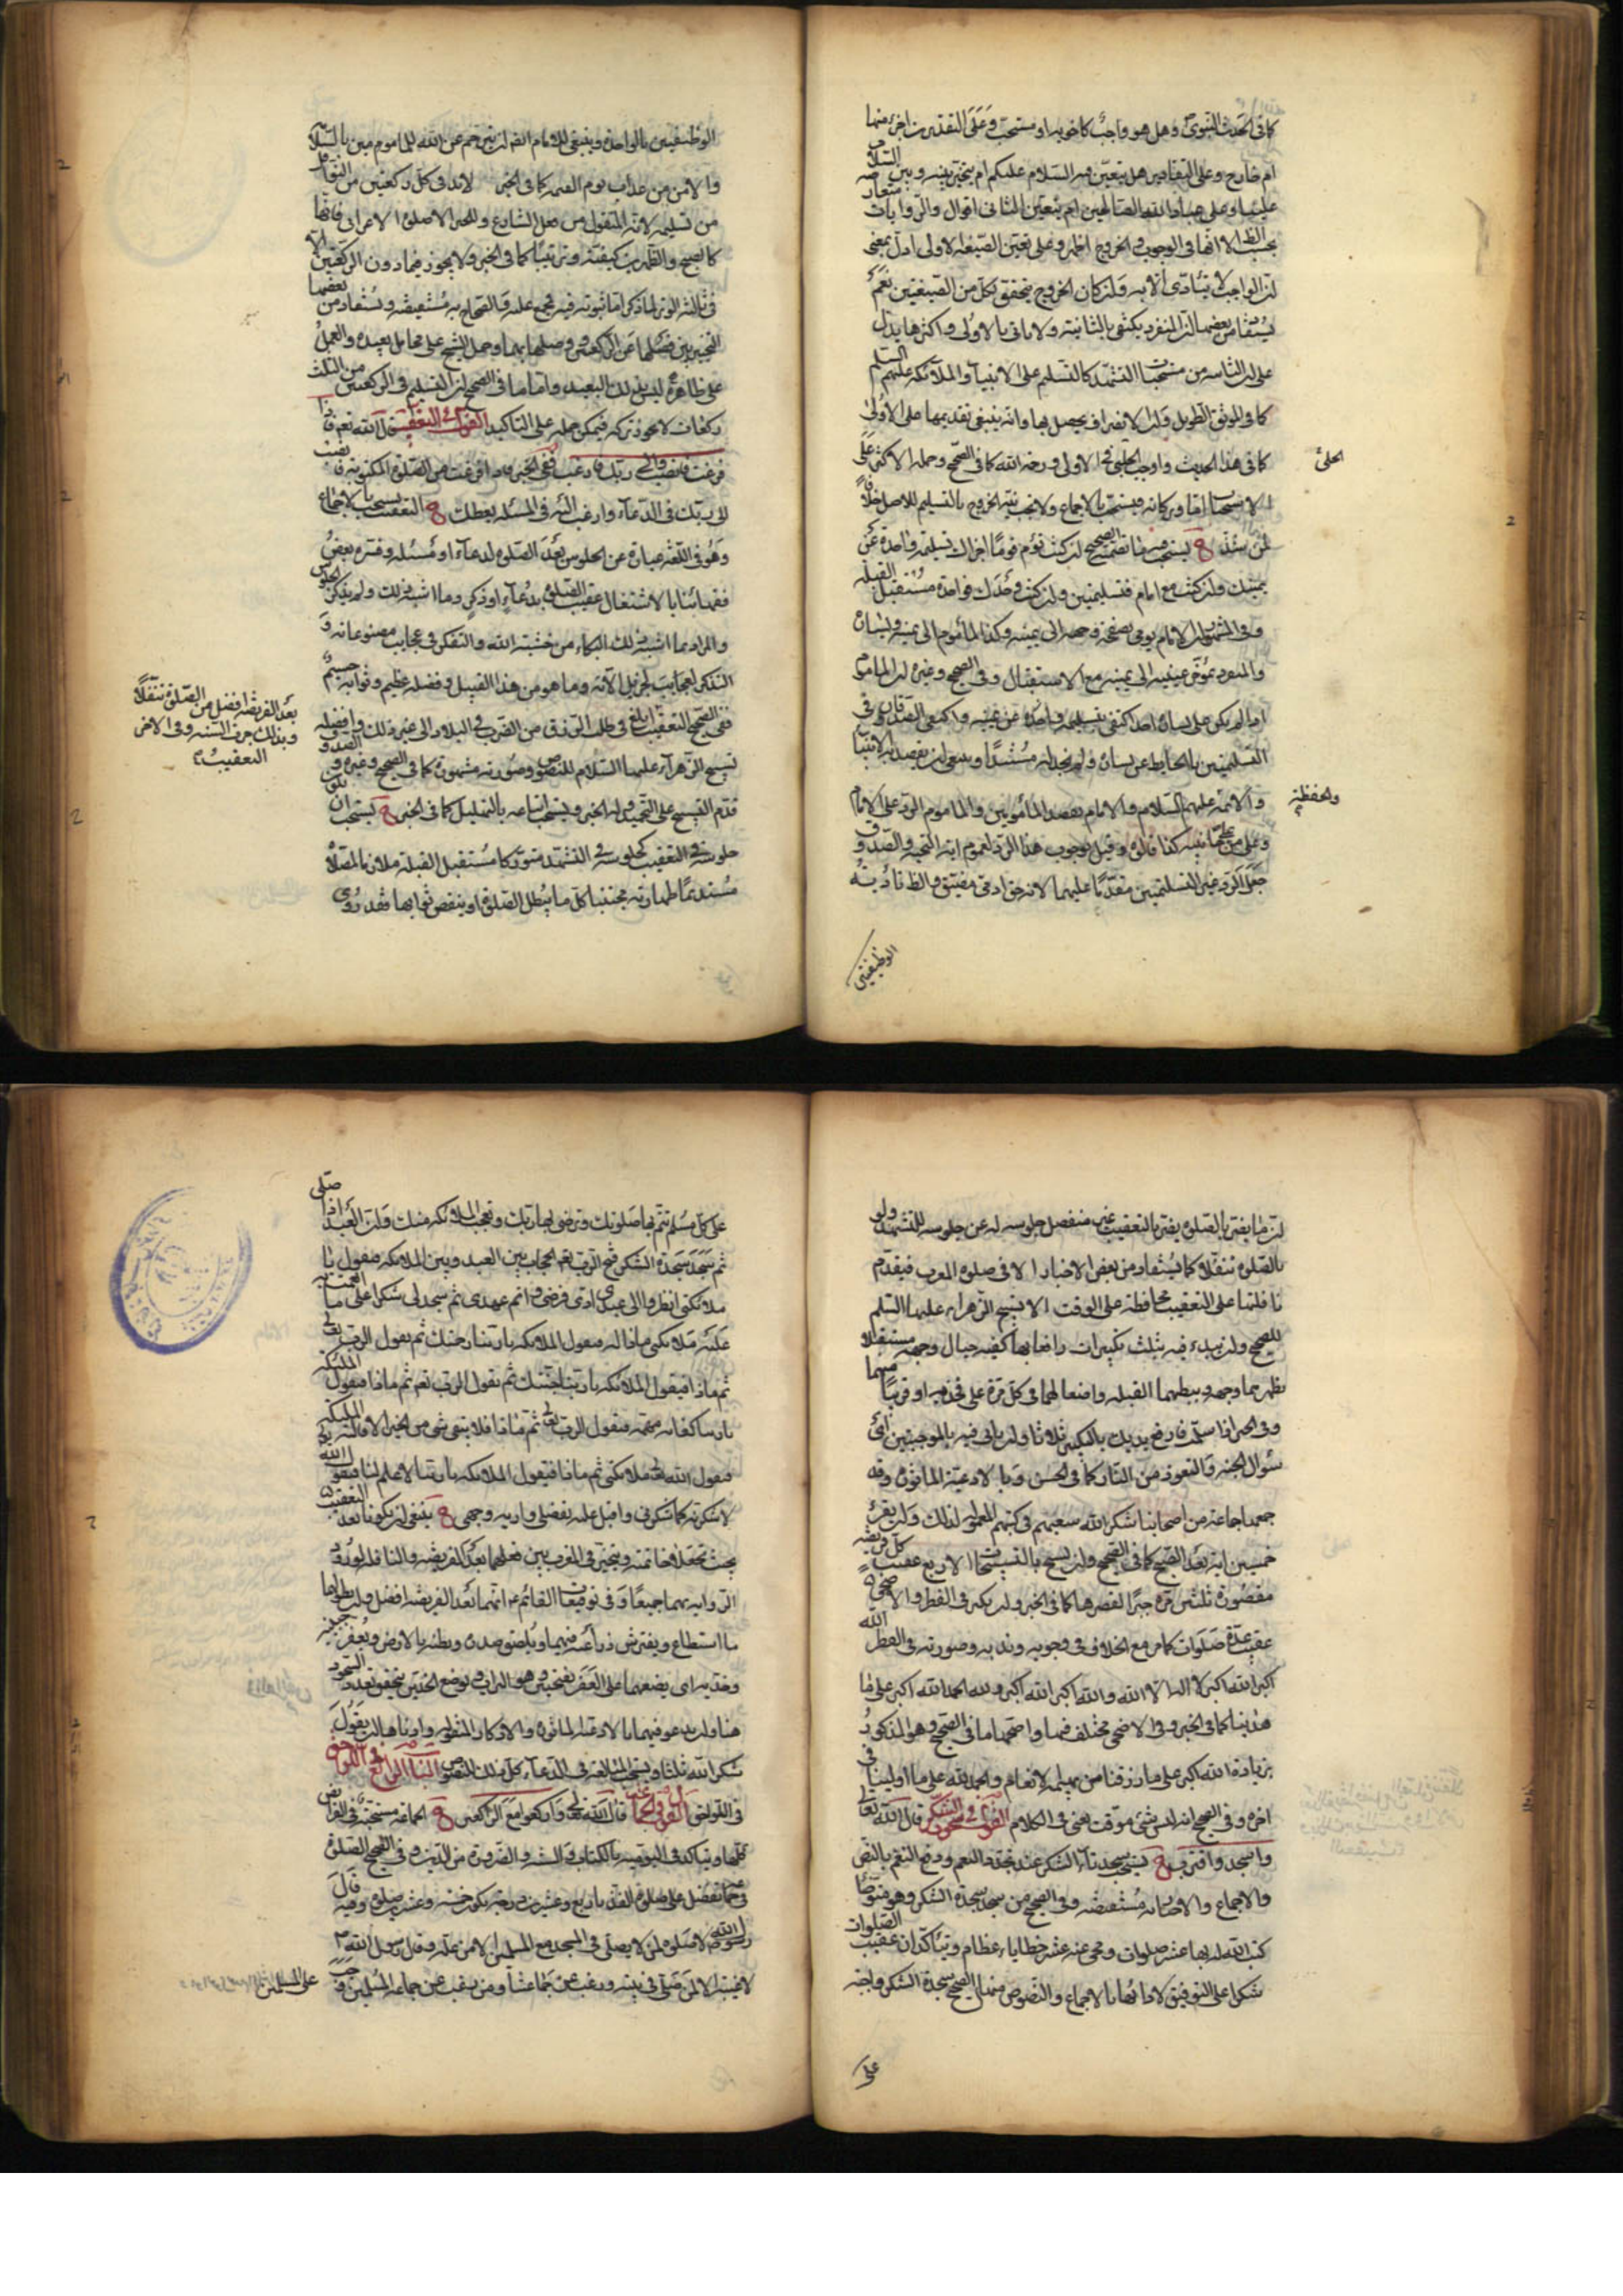 كما فى الحديث النبوى وهل هو واجب كما خويه او مستحب وعلى التقديرين اجزء منها
ام خارج وعلى التقادير هل يتعين فيه السلام عليكم ام يتخير بينه وبين السلام
علينا وعلى عباد الله الصالحين ام يتعين الثانى اقوال والروايات متعارضه
بحسب الظ الا انها فى الوجوب والخروج اظهر وعلى تعين الصيغة الاولى ادل بمعنى
ان الواجب لا يتادى الا به وان كان الخروج يتحقق بكل من الصيغتين نعم
يستفاد من بعضها ان المنفرد يكتفى بالثانية ولا ياتى بالاولى واكثرها يدل
على ان الثانيه من مستحبات التشهد كالتسليم على الانبياء والملائكه عليهم السلم
كما فى الموثق الطويل وان الانصراف يحصل بها وانه ينبغى تقديمها على الاولى
كما فى هذا الحديث واوجب الحلبى الاولى ورحمة الله كما فى الصحيح وحمله الاكثر على
الحلبى
الاستحباب اما وبركاته فيستحب بالاجماع ولا يجب نية الخروج بالتسليم للاصل خلافا
لمن شذ يستحب فيه ما تضمنه الصحيح ان كنت تؤم قوما اجزاك تسليمة واحدة عن
يمينك وان كنت مع امام فتسليمتين وان كنت وحدك فواحدة مستقبل القبله
وفى المشهور ان الامام يومى بصفحة وجهه الى يمينه وكذا المأموم الى يمينه ويساره
والمنفرد بمؤخر عينيه الى يمينه مع الاستقبال وفى الصحيح وغيره ان الماموم
اذا لم يكن على يساره احد اكتفى بتسليمة واحدة عن يمينه واكتفى الصدوقان فى
التسليمتين بالحايط عن يساره ولم نجد له مستندا وينبغى ان يقصد به الانبياء
والائمة عليهم السلام والامام يقصد المأمومين والماموم الرد على الامام
والحفظة
وعلى من على جانبيه كذا قالوه وقيل بوجوب هذا الرد لعموم اية التحية والصدوق
جعل الرد غير التسليمتين مقدما عليهما لانه حق ادمى مضيق والظ تادية
الوظيفتين
الوظيفتين بالواحدة وينبغى للامام القصد ان يترجم عن الله للمامومين بالسلامة
والامن من عذاب يوم القيمه كما فى الخبر لابد فى كل ركعتين من النوافل
من تسليمة لانه المنقول من فعل الشارع وللخبر الا صلوة الاعرابى فانها
كالصبح والظهرين كيفية وترتيبا كما فى الخبر ولا يجوز فيما دون الركعتين الا
فى ثالثة الوتر لما ذكر اما ثبوته فيه فمجمع عليه والصحاح به مستفيضة ويستفاد من بعضها
التخيير بين فصلها عن الركعتين ووصلها بهما وحمل الشيخ على محامل بعيدة والعمل
على ظاهره ليس بذلك البعيد واما ما فى الصحيح ان التسليم فى الركعتين من الثلث
ركعات لا يجوز تركه فيمكن حمله على التاكيد القول فى التعقيب قال الله تعم فاذا
فرغت فانصب والى ربك فارغب ففى الخبر فاذا فرغت من الصلوة المكتوبة فانصب
الى ربك فى الدعاء وارغب اليه فى المسئله يعطك التعقيب يستحب بالاجماع
وهو فى اللغة عبارة عن الجلوس بعد الصلوة لدعاء او مسئله وفسره بعض
فقهائنا بالاشتغال عقيب الصلوة بدعاء او ذكر وما اشبه ذلك ولم يذكر الجلوس
والمراد بما اشبه ذلك البكاء من خشية الله والتفكر فى عجايب مصنوعاته و
التذكر لعجايب لجزيل الآئه وما هو من هذا القبيل وفضله عظيم وثوابه جسيم
ففى الصحيح التعقيب ابلغ فى طلب الرزق من الضرب فى البلاد الى غير ذلك وافضله
بعد الفريضة افضل من الصلوة تنفلا
وبذلك جرت السنه وفى الاخر
التعقيب
تسبيح الزهراء عليها السلام للنصوص وصورته مشهورة كما فى الصحيح وغيره والصدوق
قدم التسبيح على التحميد وله الخبر ويستحب اتباعه بالتهليل كما فى الخبر يستحب ان يكون
جلوسه فى التعقيب كجلوسه فى التشهد متوركا مستقبل القبلة ملازما لمصلاه
مستديما طهارته مجتنبا كل ما يبطل الصلوة او ينقص ثوابها فقد روى
ان ما يضر بالصلوة يضر بالتعقيب غير منفصل جلوسه له عن جلوسه للتشهد ولو
بالصلوة تنفلا كما يستفاد من بعض الاخبار الا فى صلوة المغرب فيقدم
نافلتها على التعقيب محافظة على الوقت الا تسبيح الزهراء عليها السلم
للصحيح وان يبدء فيه بثلث تكبيرات رافعا بها كفيه حيال وجهه مستقبلا
بظهرهما وجهه وببطنهما القبلة واضعا لهما فى كل مرة على فخذيه او قريبا منهما
وفى الخبر اذا سلمت فارفع يديك بالتكبير ثلاثا وان ياتى فيه بالموجبتين اى
سؤال الجنة والتعوذ من النار كما فى الحسن وبالادعية الماثورة وقد
جمعها جماعة من اصحابنا شكر الله سعيهم فى كتبهم المعمولة لذلك وان يقرء
خمسين اية بعد الصبح كما فى الصحيح وان يسبح بالتسبيحات الاربع عقيب كل فريضة
مقصورة ثلثين مرة جبرا لقصرها كما فى الخبر وان يكبر فى الفطر والاضحى
عقيب عدة صلوات كما مر مع الخلاف فى وجوبه وندبه وصورته فى الفطر الله
اكبر الله اكبر لا اله الا الله والله اكبر الله اكبر ولله الحمد الله اكبر على ما
هدينا كما فى الخبر وفى الاضحى مختلف فيها واصحها ما فى الصحيح وهو المذكور
بزيادة الله اكبر على ما رزقنا من بهيمة الانعام والحمد لله على ما ابلينا فى
اخره وفى الصحيح انه ليس شئ موقت يعنى فى الكلام القول فى سجود الشكر قال الله تعالى
واسجد واقترب يستحب سجدتا الشكر عند تجدد النعم ودفع النقم بالنص
والاجماع والاخبار به مستفيضه وفى الصحيح من سجد سجدة الشكر وهو متوضأ
كتب الله له بها عشر صلوات ومحى عنه عشر خطايا عظام ويتأكدان عقيب الصلوات
شكرا على التوفيق لادائها بالاجماع والنصوص منها الصحيح سجدة الشكر واجبة
على
على كل مسلم تتم بها صلوتك وترضى بها ربك وتعجب الملائكه منك وان العبد اذا صلى
ثم سجد سجدة الشكر فتح الرب تعم الحجاب بين العبد وبين الملائكه فيقول يا
ملائكتى انظروا الى عبدى ادى فرضى واتم عهدى ثم سجد لى شكرا على ما انعمت به
عليه ملائكتى ماذا له فيقول الملائكه يا ربنا رحمتك ثم يقول الرب تعالى
ثم ماذا فيقول الملائكه يا ربنا جنتك ثم يقول الرب تعم ثم ماذا فيقول الملئكة
يا ربنا كفاية مهمه فيقول الرب تعالى ثم ماذا فلا يبقى شئ من الخير الا قالته الملئكة
فيقول الله تعالى ملائكتى ثم ماذا فيقول الملائكه يا ربنا لا علم لنا فيقول الله
لاشكرنه كما شكرنى واقبل عليه بفضلى واريه وجهى ينبغى ان يكونا بعد التعقيب
بحيث تجعلا خاتمته ويتخير فى المغرب بين فعلهما بعد الفريضة والنافلة لورود
الرواية بهما جميعا وفى توقيعات القائم ع انهما بعد الفريضة افضل وان يطولها
ما استطاع ويفترش ذراعيه فيهما ويلصق صدره وبطنه بالارض ويعفر جبينه
وخديه اى يضعهما على العفر بفتحتين وهو التراب وبوضع الخدين يتحقق تعدد السجود
هنا وان يدعو فيهما بالادعية الماثورة والاذكار المنقولة وادناها ان يقول
شكرا لله ثلثا ويستحب المبالغة فى الدعاء كل ذلك للنصوص الباب الرابع فى اللواحق
فى اللواحق القول فى الجماعة قال الله تعالى واركعوا مع الراكعين الجماعة مستحبة فى الفرائض
كلها ويتاكد فى اليوميه بالكتاب والسنه والضرورة من الدين وفى الصحيح الصلوة
فى جماعة تفضل على صلوة الفذ باربع وعشرين درجة تكون خمسة وعشرين صلوة وفيه قال
رسول الله ص لا صلوة لمن لا يصلى فى المسجد مع المسلمين الا من علة وقال رسول الله ص
لا غيبة الا لمن صلى فى بيته ورغب عن جماعتنا ومن رغب عن جماعة المسلمين وجب
على المسلمين